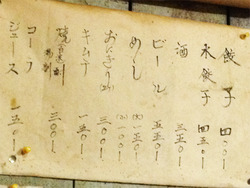 餃子 四〇〇ー
水餃子 四五〇ー
酒 三五〇ー
ビール 五五〇ー
めし
(大)二〇〇ー
(小)一〇〇ー
おにぎり 三〇〇ー
キムチ 一五〇ー
三〇〇ー
コーラ
ジュース 一五〇ー